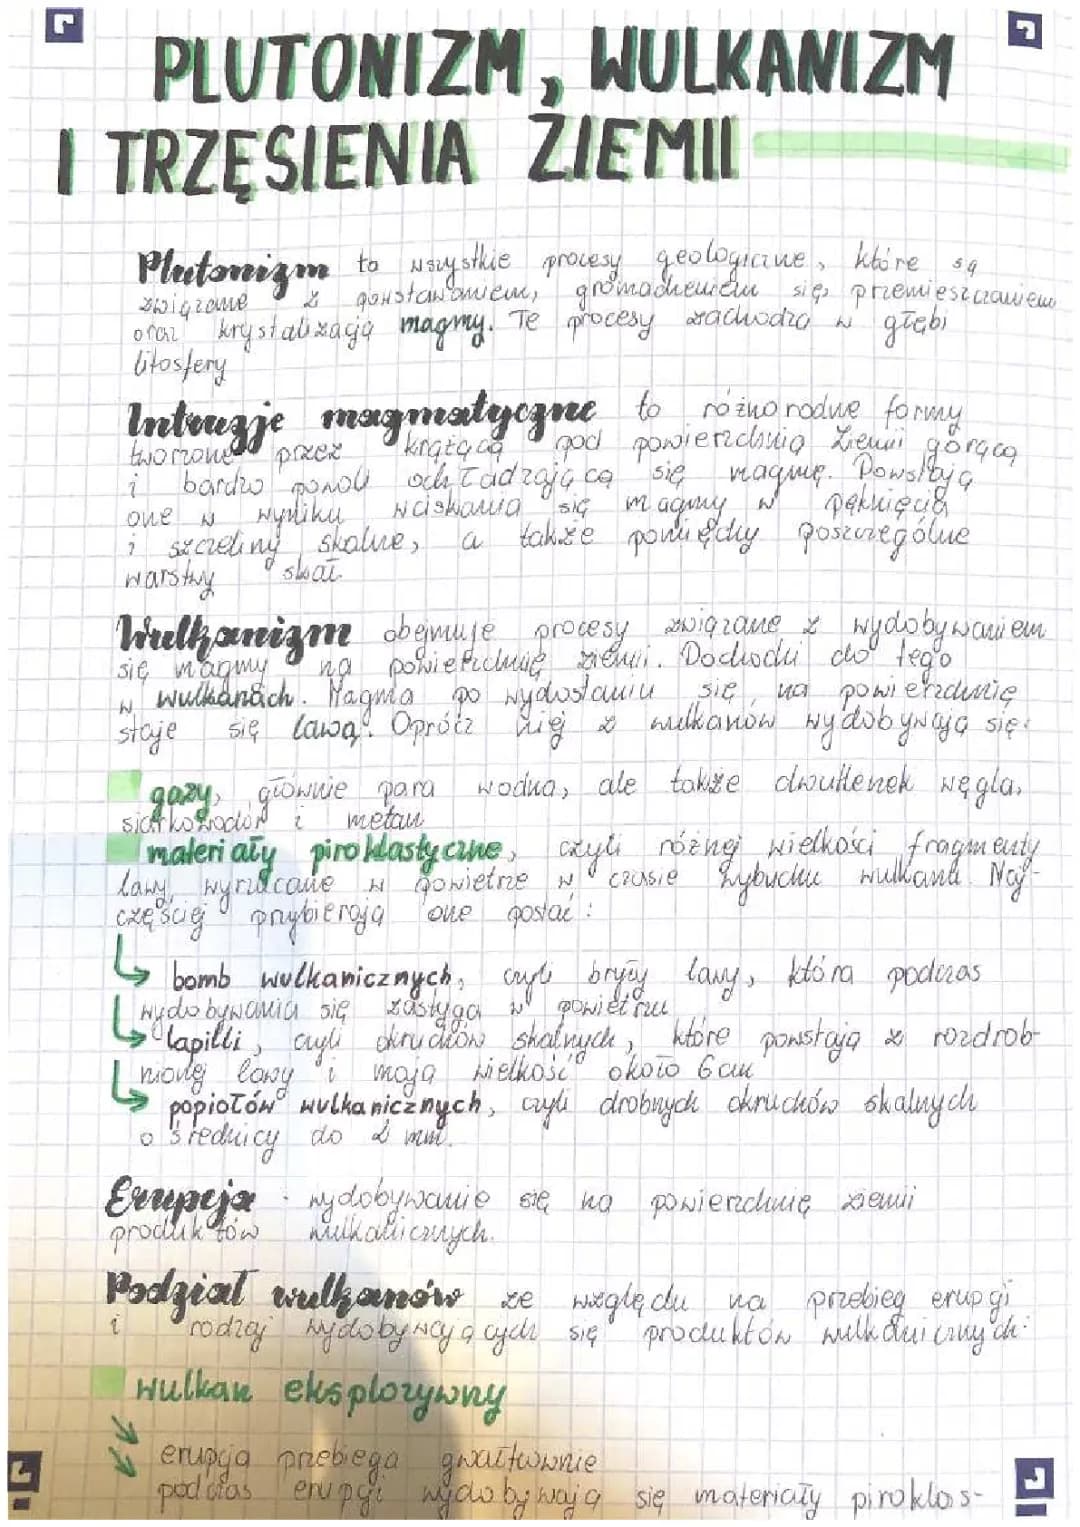 PLUTONIZM, WULKANIZM
I TRZĘSIENIA ZIEMII
Plutonizm to wszystkie procesy geologiczne, które są
związane z powstawaniem, gromadzeniem się, przemieszczaniem
oraz krystalizacją magmy. Te procesy zachodzą w głębi
litosfery
Intruzje magmatyczne to różnorodne formy
tworzone przez krążącą pod powierzchnią Ziemi gorącą
i bardzo powoli ochładzającą się magmę. Powstają
one w wyniku wciskania się magmy w pęknięcia
i szczeliny skalne, a także pomiędzy poszczególne
warstwy skał.
Wulkanizm obejmuje procesy związane z wydobywaniem
się magmy na powierzchnię ziemii. Dochodzi do tego
w wulkanach. Magma po wydostaniu się na powierzchnię
staje się lawą. Oprócz niej z wulkanów wydobywają się:
gazy, głównie para wodna, ale także dwutlenek węgla,
siarkowodór i metan
materiały piroklastyczne, czyli różnej wielkości fragmenty
lawy wyrzucane w powietrze w czasie wybuchu wulkanu. Naj-
częściej przybierają one postać:
bomb wulkanicznych, czyli bryły lawy, która podczas
wydobywania się zastyga w powietrzu
lapilli, czyli okruchów skalnych, które powstają z rozdrob-
nionej lawy i mają wielkość około 6 cm
popiołów wulkanicznych, czyli drobnych okruchów skalnych
o średnicy do 2 mm.
Erupcja - wydobywanie się na powierzchnię ziemii
produktów wulkanicznych.
Podział wulkanów ze względu na przebieg erupcji
i rodzaj wydobywających się produktów wulkanicznych:
wulkan eksplozywny
erupcja przebiega gwałtownie
podczas erupcji wydobywają się materiały piroklas-